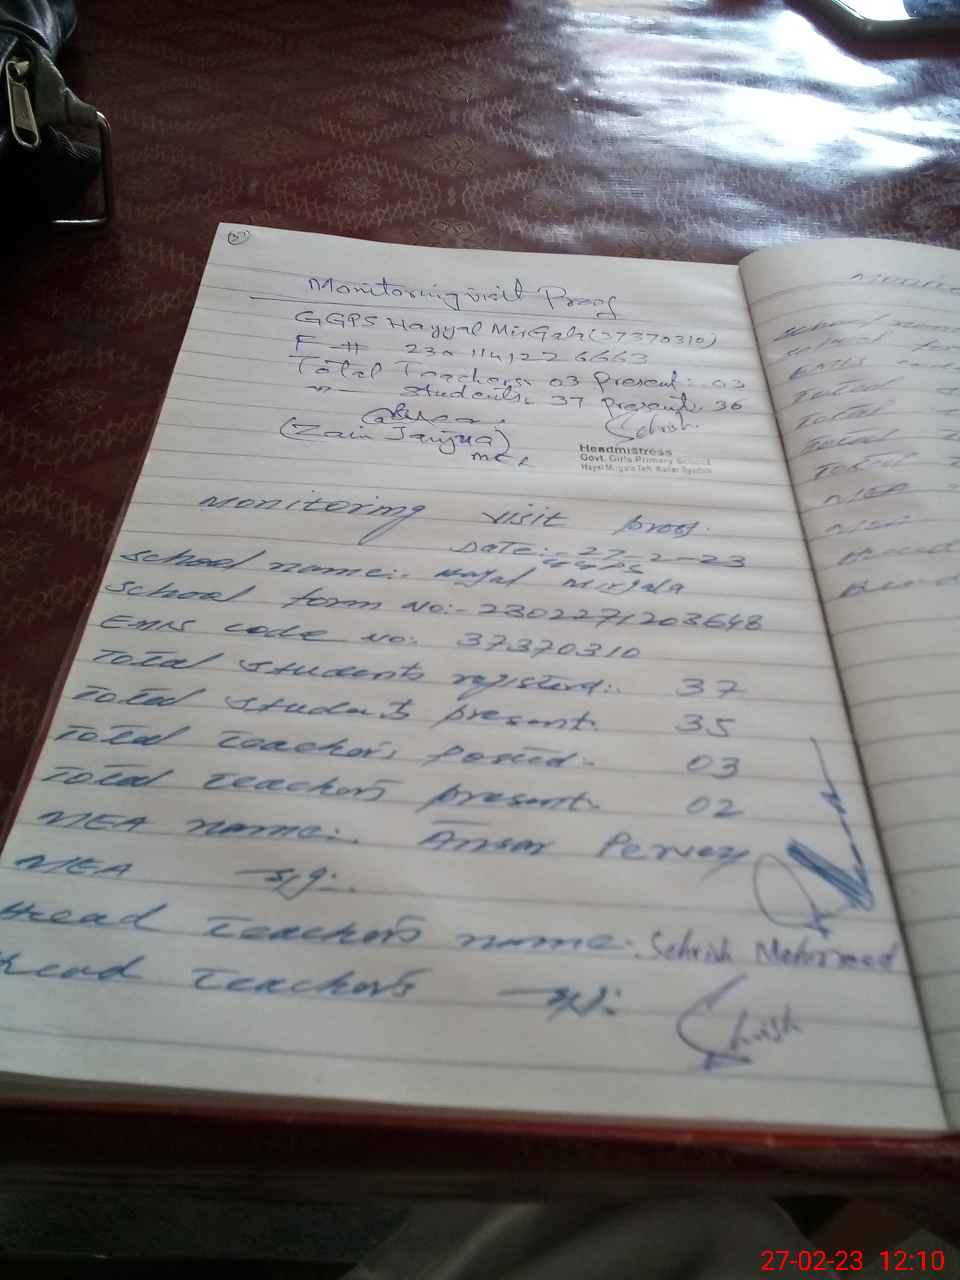 Monitoring visit Proof
GGPS Hayyal MirGala (37370310)
F-#
Total Teachers: 03 Present: 03
" — Students: 37 present: 36
(Zain Janjua) Sehrish.
MEA
Headmistress
Govt. Girls Primary School
Hayal Mirgala Teh. Kallar Syedan
Monitoring visit proof.
Date:- 27-2-23
GGPS
School name:- Hayal Mirgala
School form No:- 2302271203648
Emis code No:. 37370310
Total students registerd:. 37
Total students present. 35
Total teachers posted:- 03
Total teachers present. 02
MEA name:. Ansar Pervez
MEA sig:.
Head teachers name:. Sehrish Mehmood
Head teachers sig:
Sehrish
27-02-23 12:10